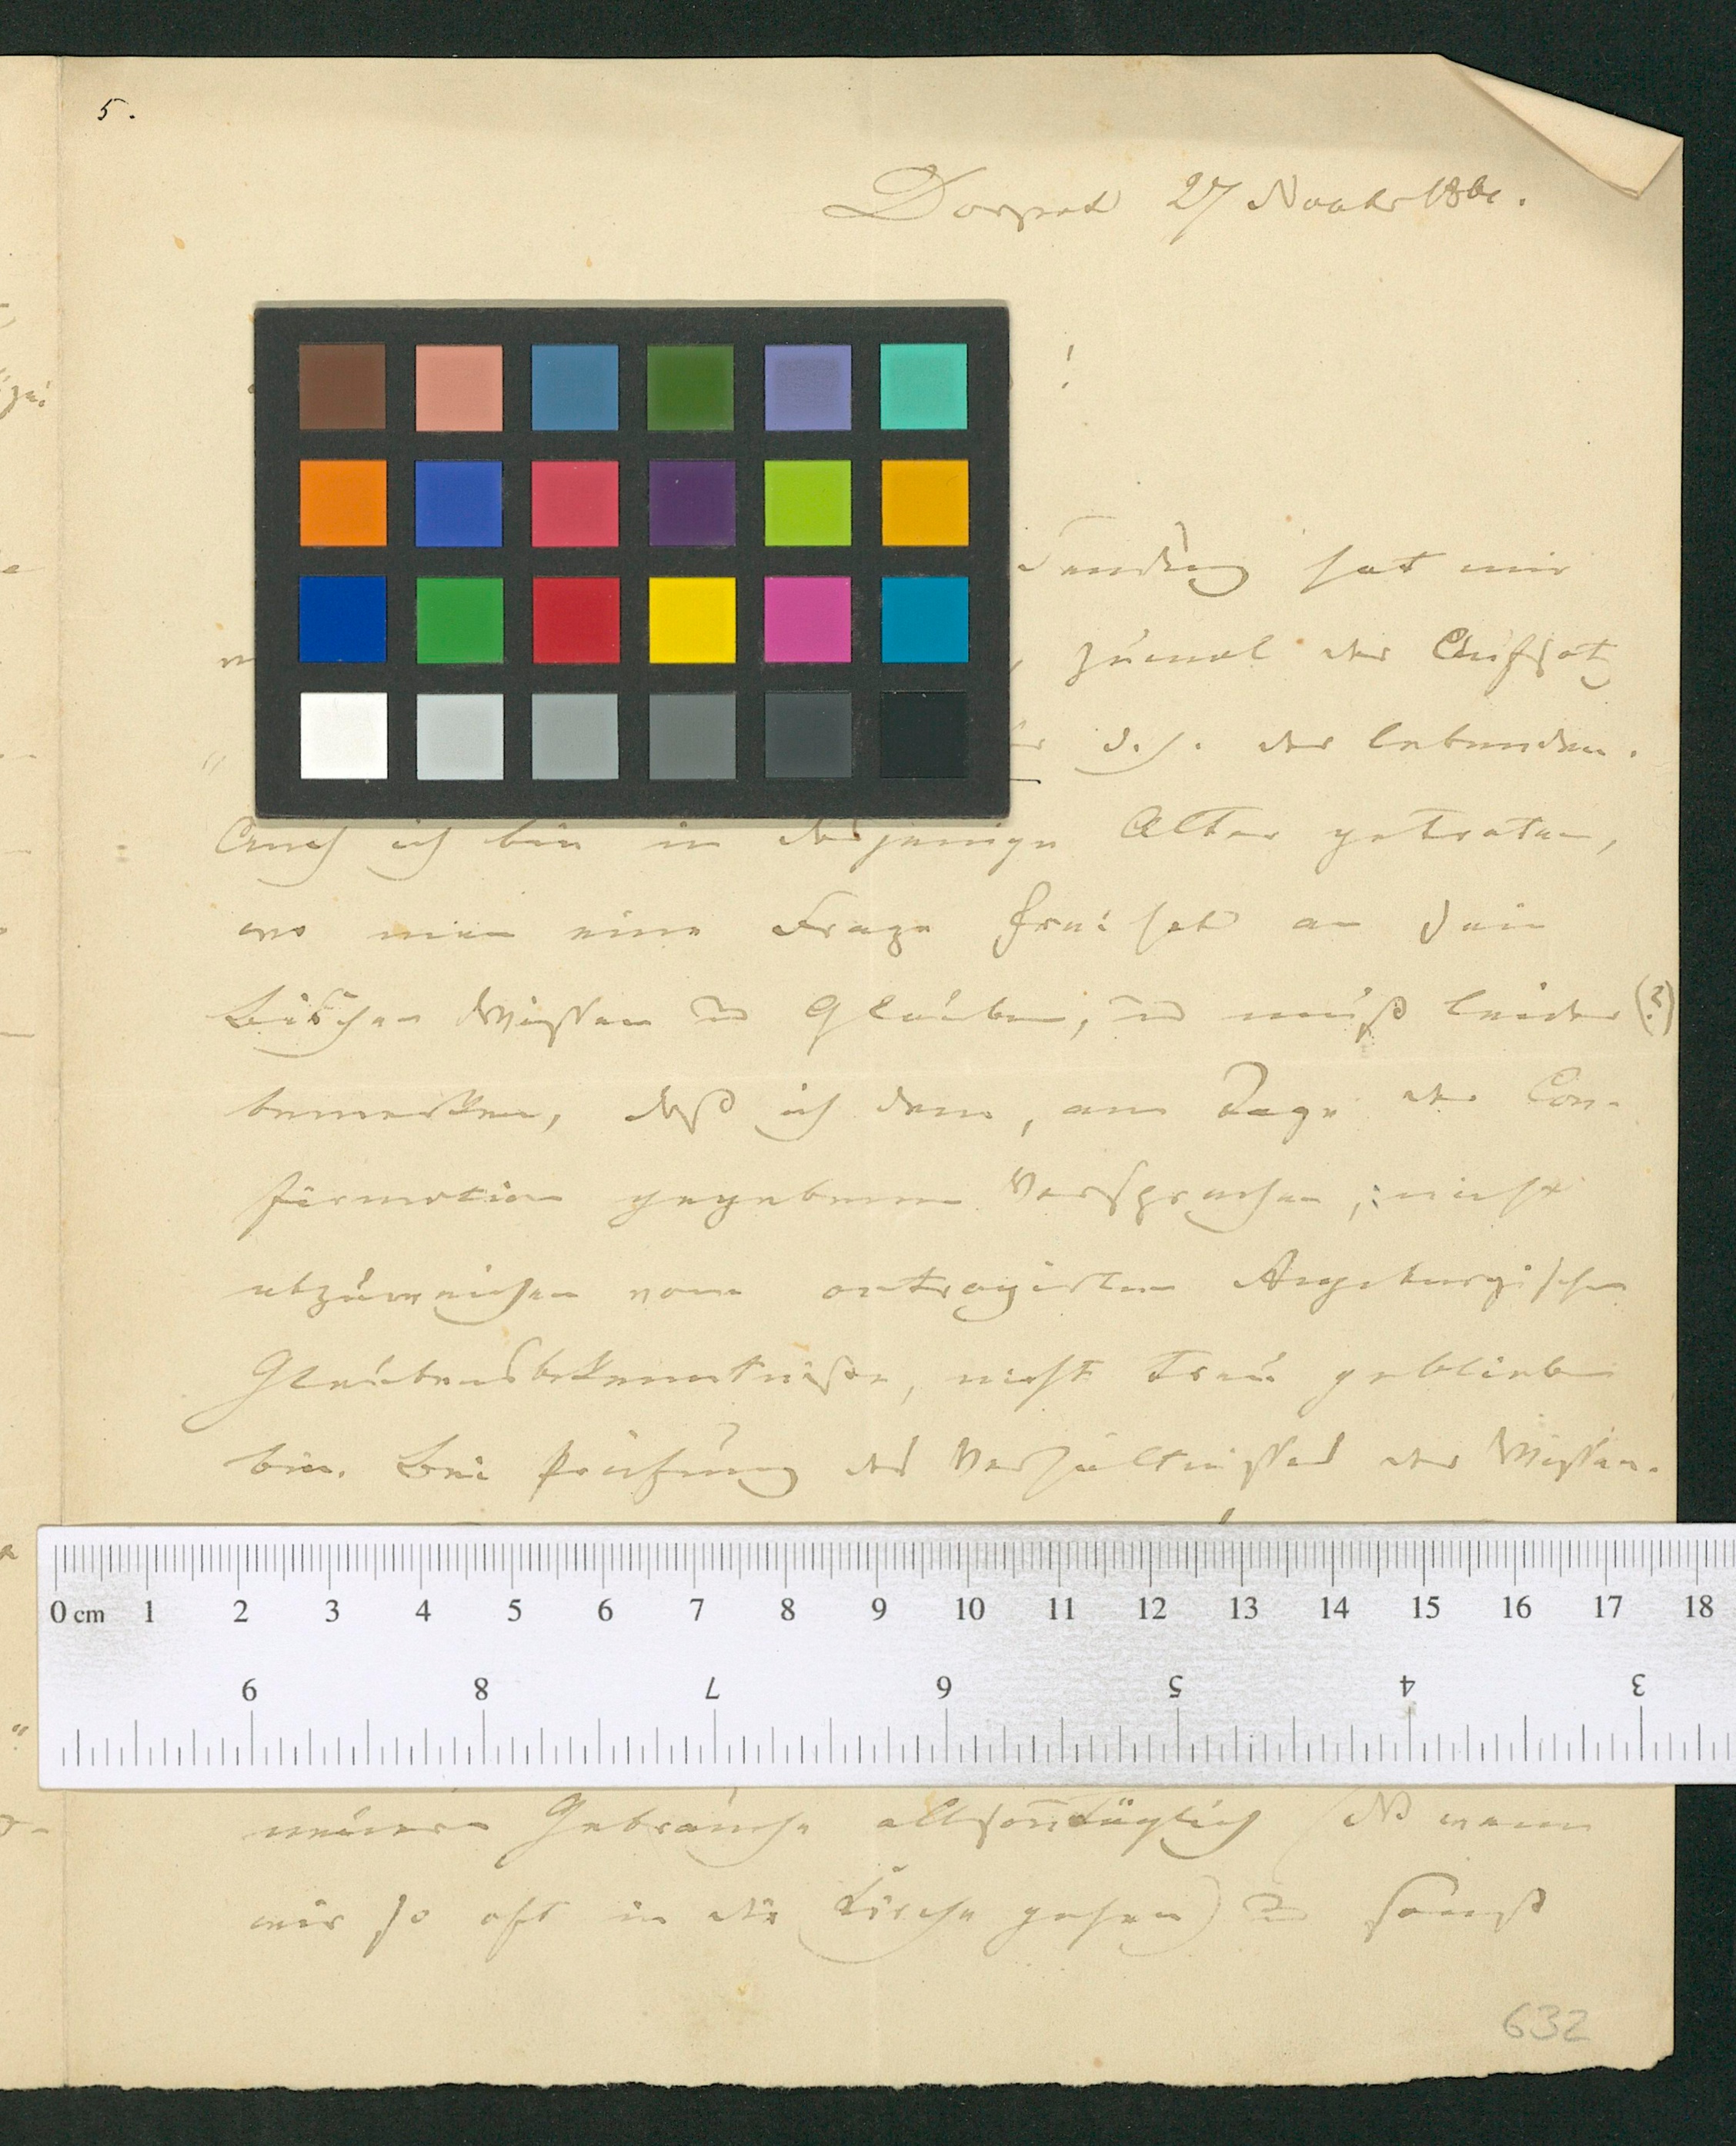 5.
Dorpat 27 Novbr 1861.
!
Sendung hat mir
, zumal der Aufsatz
d. h. der lebenden.
Auch ich bin in dasjenige Alter getreten,
wo man eine Frage frei hat an sein
Bischen Wissen u Glauben, und muß leider (?)
bemerken, daß ich dem, am Tage der Con-
firmation gegebenen Versprechen, nicht
abzuweichen vom octroyirten Augsburgischen
Glaubensbekenntnisse, nicht treu geblieben
bin. Bei Prüfung des Verhältnisses der Wissen-
0 cm 1 2 3 4 5 6 7 8 9 10 11 12 13 14 15 16 17 18
9 8 7 6 5 4 3
Gebrauche allsonntäglich (NB wenn
wir so oft in die Kirche gehen) u sonst
632